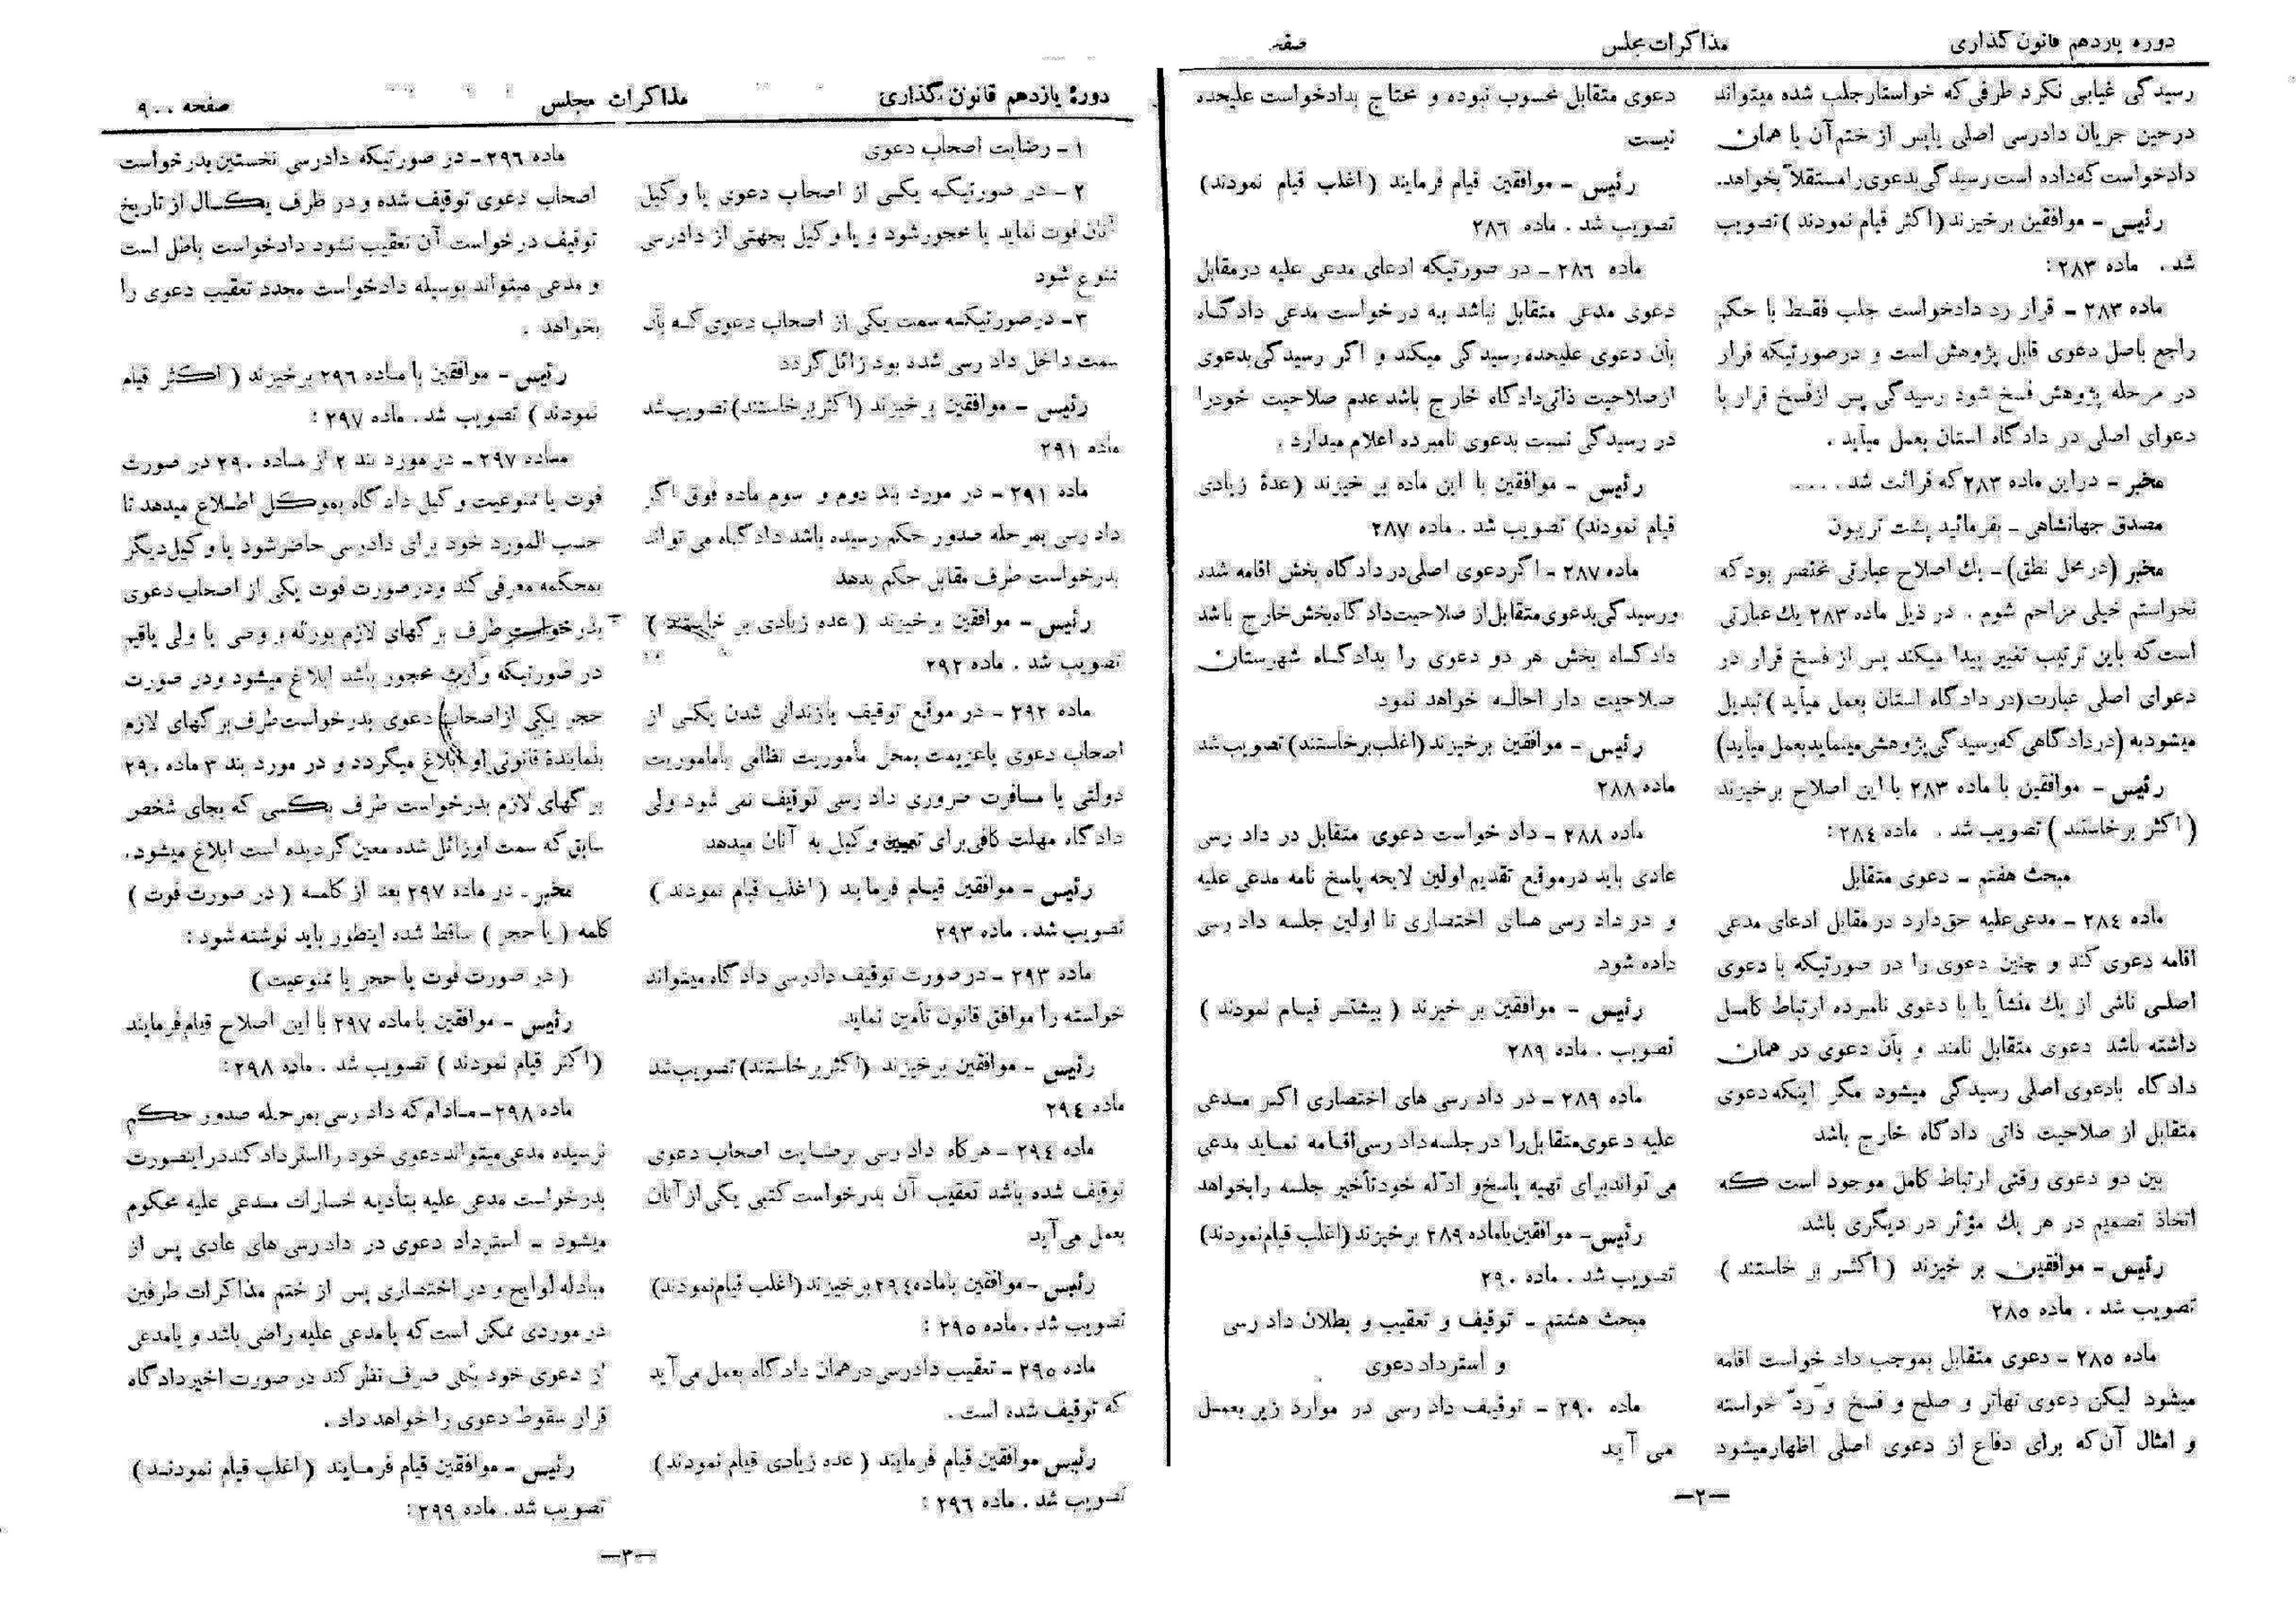 دوره یازدهم قانون گذاری
مذاکرات مجلس
صفه
رسیدگی غیابی نکرد طرفی که خواستار جلب شده میتواند
درحین جریان دادرسی اصلی یاپس از ختم آن با همان
دادخواست که داده است رسیدگی بدعوی را مستقلاً بخواهد.
رئیس - موافقین برخیزند (اکثر قیام نمودند) تصویب
شد . ماده ۲۸۳ :
ماده ۲۸۳ - قرار رد دادخواست جلب فقط با حکم
راجع باصل دعوی قابل پژوهش است و درصورتیکه قرار
در مرحله پژوهش فسخ شود رسیدگی پس ازفسخ قرار با
دعوای اصلی در دادگاه استان بعمل میآید .
مخبر - دراین ماده ۲۸۳ که قرائت شد . . . .
مصدق جهانشاهی - بفرمائید پشت تریبون
مخبر (در محل نطق) - یك اصلاح عبارتی مختصر بود که
نخواستم خیلی مزاحم شوم . در ذیل ماده ۲۸۳ یك عبارتی
است که باین ترتیب تغییر پیدا میکند پس از فسخ قرار در
دعوای اصلی عبارت (در دادگاه استان بعمل میآید) تبدیل
میشود به (دردادگاهی که رسیدگی پژوهشی مینماید بعمل میآید)
رئیس - موافقین با ماده ۲۸۳ با این اصلاح برخیزند
(اکثر برخاستند) تصویب شد . ماده ۲۸٤ :
مبحث هفتم - دعوی متقابل
ماده ۲۸٤ - مدعی علیه حق دارد در مقابل ادعای مدعی
اقامه دعوی کند و چنین دعوی را در صورتیکه با دعوی
اصلی ناشی از یك منشأ یا با دعوی نامبرده ارتباط کامل
داشته باشد دعوی متقابل نامند و بآن دعوی در همان
دادگاه بادعوی اصلی رسیدگی میشود مگر اینکه دعوی
متقابل از صلاحیت ذاتی دادگاه خارج باشد
بین دو دعوی وقتی ارتباط کامل موجود است که
اتخاذ تصمیم در هر یك مؤثر در دیگری باشد
رئیس - موافقین بر خیزند (اکثر بر خاستند)
تصویب شد . ماده ۲۸٥
ماده ۲۸٥ - دعوی متقابل بموجب داد خواست اقامه
میشود لیکن دعوی تهاتر و صلح و فسخ و ردّ خواسته
و امثال آن که برای دفاع از دعوی اصلی اظهار میشود
دعوی متقابل محسوب نبوده و محتاج بدادخواست علیحده
نیست
رئیس - موافقین قیام فرمایند (اغلب قیام نمودند)
تصویب شد . ماده ۲۸٦
ماده ۲۸٦ - در صورتیکه ادعای مدعی علیه درمقابل
دعوی مدعی متقابل نباشد به درخواست مدعی دادگاه
بآن دعوی علیحده رسیدگی میکند و اگر رسیدگی بدعوی
ازصلاحیت ذاتی دادگاه خارج باشد عدم صلاحیت خودرا
در رسیدگی نسبت بدعوی نامبرده اعلام میدارد .
رئیس - موافقین با این ماده بر خیزند (عدهٔ زیادی
قیام نمودند) تصویب شد . ماده ۲۸۷
ماده ۲۸۷ - اگر دعوی اصلی در دادگاه بخش اقامه شده
ورسیدگی بدعوی متقابل از صلاحیت دادگاه بخش خارج باشد
دادگاه بخش هر دو دعوی را بدادگاه شهرستان
صلاحیت دار احاله خواهد نمود
رئیس - موافقین برخیزند (اغلب برخاستند) تصویب شد
ماده ۲۸۸
ماده ۲۸۸ - داد خواست دعوی متقابل در داد رسی
عادی باید درموقع تقدیم اولین لایحه پاسخ نامه مدعی علیه
و در داد رسی های اختصاری تا اولین جلسه داد رسی
داده شود
رئیس - موافقین بر خیزند (بیشتر قیام نمودند)
تصویب . ماده ۲۸۹
ماده ۲۸۹ - در داد رسی های اختصاری اگر مدعی
علیه دعوی متقابل را در جلسه داد رسی اقامه نماید مدعی
می تواند برای تهیه پاسخ و ادله خود تأخیر جلسه را بخواهد
رئیس - موافقین باماده ۲۸۹ برخیزند (اغلب قیام نمودند)
تصویب شد . ماده ۲۹۰
مبحث هشتم - توقیف و تعقیب و بطلان داد رسی
و استرداد دعوی
ماده ۲۹۰ - توقیف داد رسی در موارد زیر بعمل
می آید
—۲—
دورهٔ یازدهم قانون گذاری
مذاکرات مجلس
صفحه ۹۰۰
۱ - رضایت اصحاب دعوی
۲ - در صورتیکه یکی از اصحاب دعوی یا وکیل
آنان فوت نماید یا محجور شود و یا وکیل بجهتی از دادرسی
ممنوع شود
۳ - درصورتیکه سمت یکی از اصحاب دعوی که بآن
سمت داخل داد رسی شده بود زائل گردد
رئیس - موافقین برخیزند (اکثر برخاستند) تصویب شد
ماده ۲۹۱
ماده ۲۹۱ - در مورد بند دوم و سوم ماده فوق اگر
داد رسی بمرحله صدور حکم رسیده باشد دادگاه می تواند
بدرخواست طرف مقابل حکم بدهد
رئیس - موافقین برخیزند (عده زیادی بر خاستند)
تصویب شد . ماده ۲۹۲
ماده ۲۹۲ - در موقع توقیف یازندانی شدن یکی از
اصحاب دعوی یاعزیمت بمحل مأموریت نظامی یاماموریت
دولتی یا مسافرت ضروری داد رسی توقیف نمی شود ولی
دادگاه مهلت کافی برای تعیین وکیل به آنان میدهد
رئیس - موافقین قیام فرمایند (اغلب قیام نمودند)
تصویب شد . ماده ۲۹۳
ماده ۲۹۳ - درصورت توقیف دادرسی دادگاه میتواند
خواسته را موافق قانون تأمین نماید
رئیس - موافقین برخیزند (اکثر برخاستند) تصویب شد
ماده ۲۹٤
ماده ۲۹٤ - هرگاه داد رسی برضایت اصحاب دعوی
توقیف شده باشد تعقیب آن بدرخواست کتبی یکی از آنان
بعمل می آید
رئیس - موافقین باماده ۲۹٤ برخیزند (اغلب قیام نمودند)
تصویب شد . ماده ۲۹٥ :
ماده ۲۹٥ - تعقیب دادرسی درهمان دادگاه بعمل می آید
که توقیف شده است .
رئیس موافقین قیام فرمایند (عده زیادی قیام نمودند)
تصویب شد . ماده ۲۹٦ :
ماده ۲۹٦ - در صورتیکه دادرسی نخستین بدرخواست
اصحاب دعوی توقیف شده و در ظرف یکسال از تاریخ
توقیف درخواست آن تعقیب نشود دادخواست باطل است
و مدعی میتواند بوسیله دادخواست مجدد تعقیب دعوی را
بخواهد .
رئیس - موافقین با ماده ۲۹٦ برخیزند (اکثر قیام
نمودند) تصویب شد . ماده ۲۹۷ :
ماده ۲۹۷ - در مورد بند ۲ از ماده ۲۹۰ در صورت
فوت یا ممنوعیت وکیل دادگاه بموکل اطلاع میدهد تا
حسب المورد خود برای دادرسی حاضر شود یا وکیل دیگر
بمحکمه معرفی کند ودرصورت فوت یکی از اصحاب دعوی
بدرخواست طرف برگهای لازم بورثه و وصی یا ولی یاقیم
در صورتیکه وارث محجور باشد ابلاغ میشود ودر صورت
حجر یکی از اصحاب دعوی بدرخواست طرف برگهای لازم
بنمایندهٔ قانونی او ابلاغ میگردد و در مورد بند ۳ ماده ۲۹۰
برگهای لازم بدرخواست طرف بکسی که بجای شخص
سابق که سمت اوزائل شده معین گردیده است ابلاغ میشود.
مخبر - در ماده ۲۹۷ بعد از کلمه (در صورت فوت)
کلمه (یا حجر) ساقط شده اینطور باید نوشته شود :
(در صورت فوت یا حجر یا ممنوعیت)
رئیس - موافقین باماده ۲۹۷ با این اصلاح قیام فرمایند
(اکثر قیام نمودند) تصویب شد . ماده ۲۹۸ :
ماده ۲۹۸ - مادام که داد رسی بمرحله صدور حکم
نرسیده مدعی میتواند دعوی خود را استرداد کند دراینصورت
بدرخواست مدعی علیه بتأدیه خسارات مدعی علیه محکوم
میشود - استرداد دعوی در دادرسی های عادی پس از
مبادله لوایح و در اختصاری پس از ختم مذاکرات طرفین
در موردی ممکن است که یا مدعی علیه راضی باشد و یا مدعی
از دعوی خود بکلی صرف نظر کند در صورت اخیر دادگاه
قرار سقوط دعوی را خواهد داد .
رئیس - موافقین قیام فرمایند (اغلب قیام نمودند)
تصویب شد . ماده ۲۹۹ :
—۳—